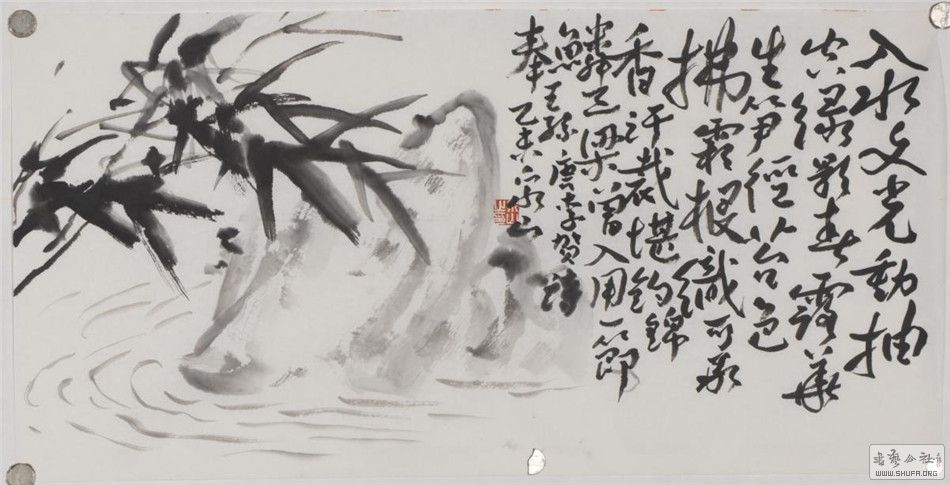 入水文光動抽
空綠影春露華
生笋徑苔色
拂霜根織可承
香汗裁堪釣錦
鱗三梁曾入用一節
奉王孫唐李賀詩
乙未 山
書藝公社
WWW.SHUFA.ORG